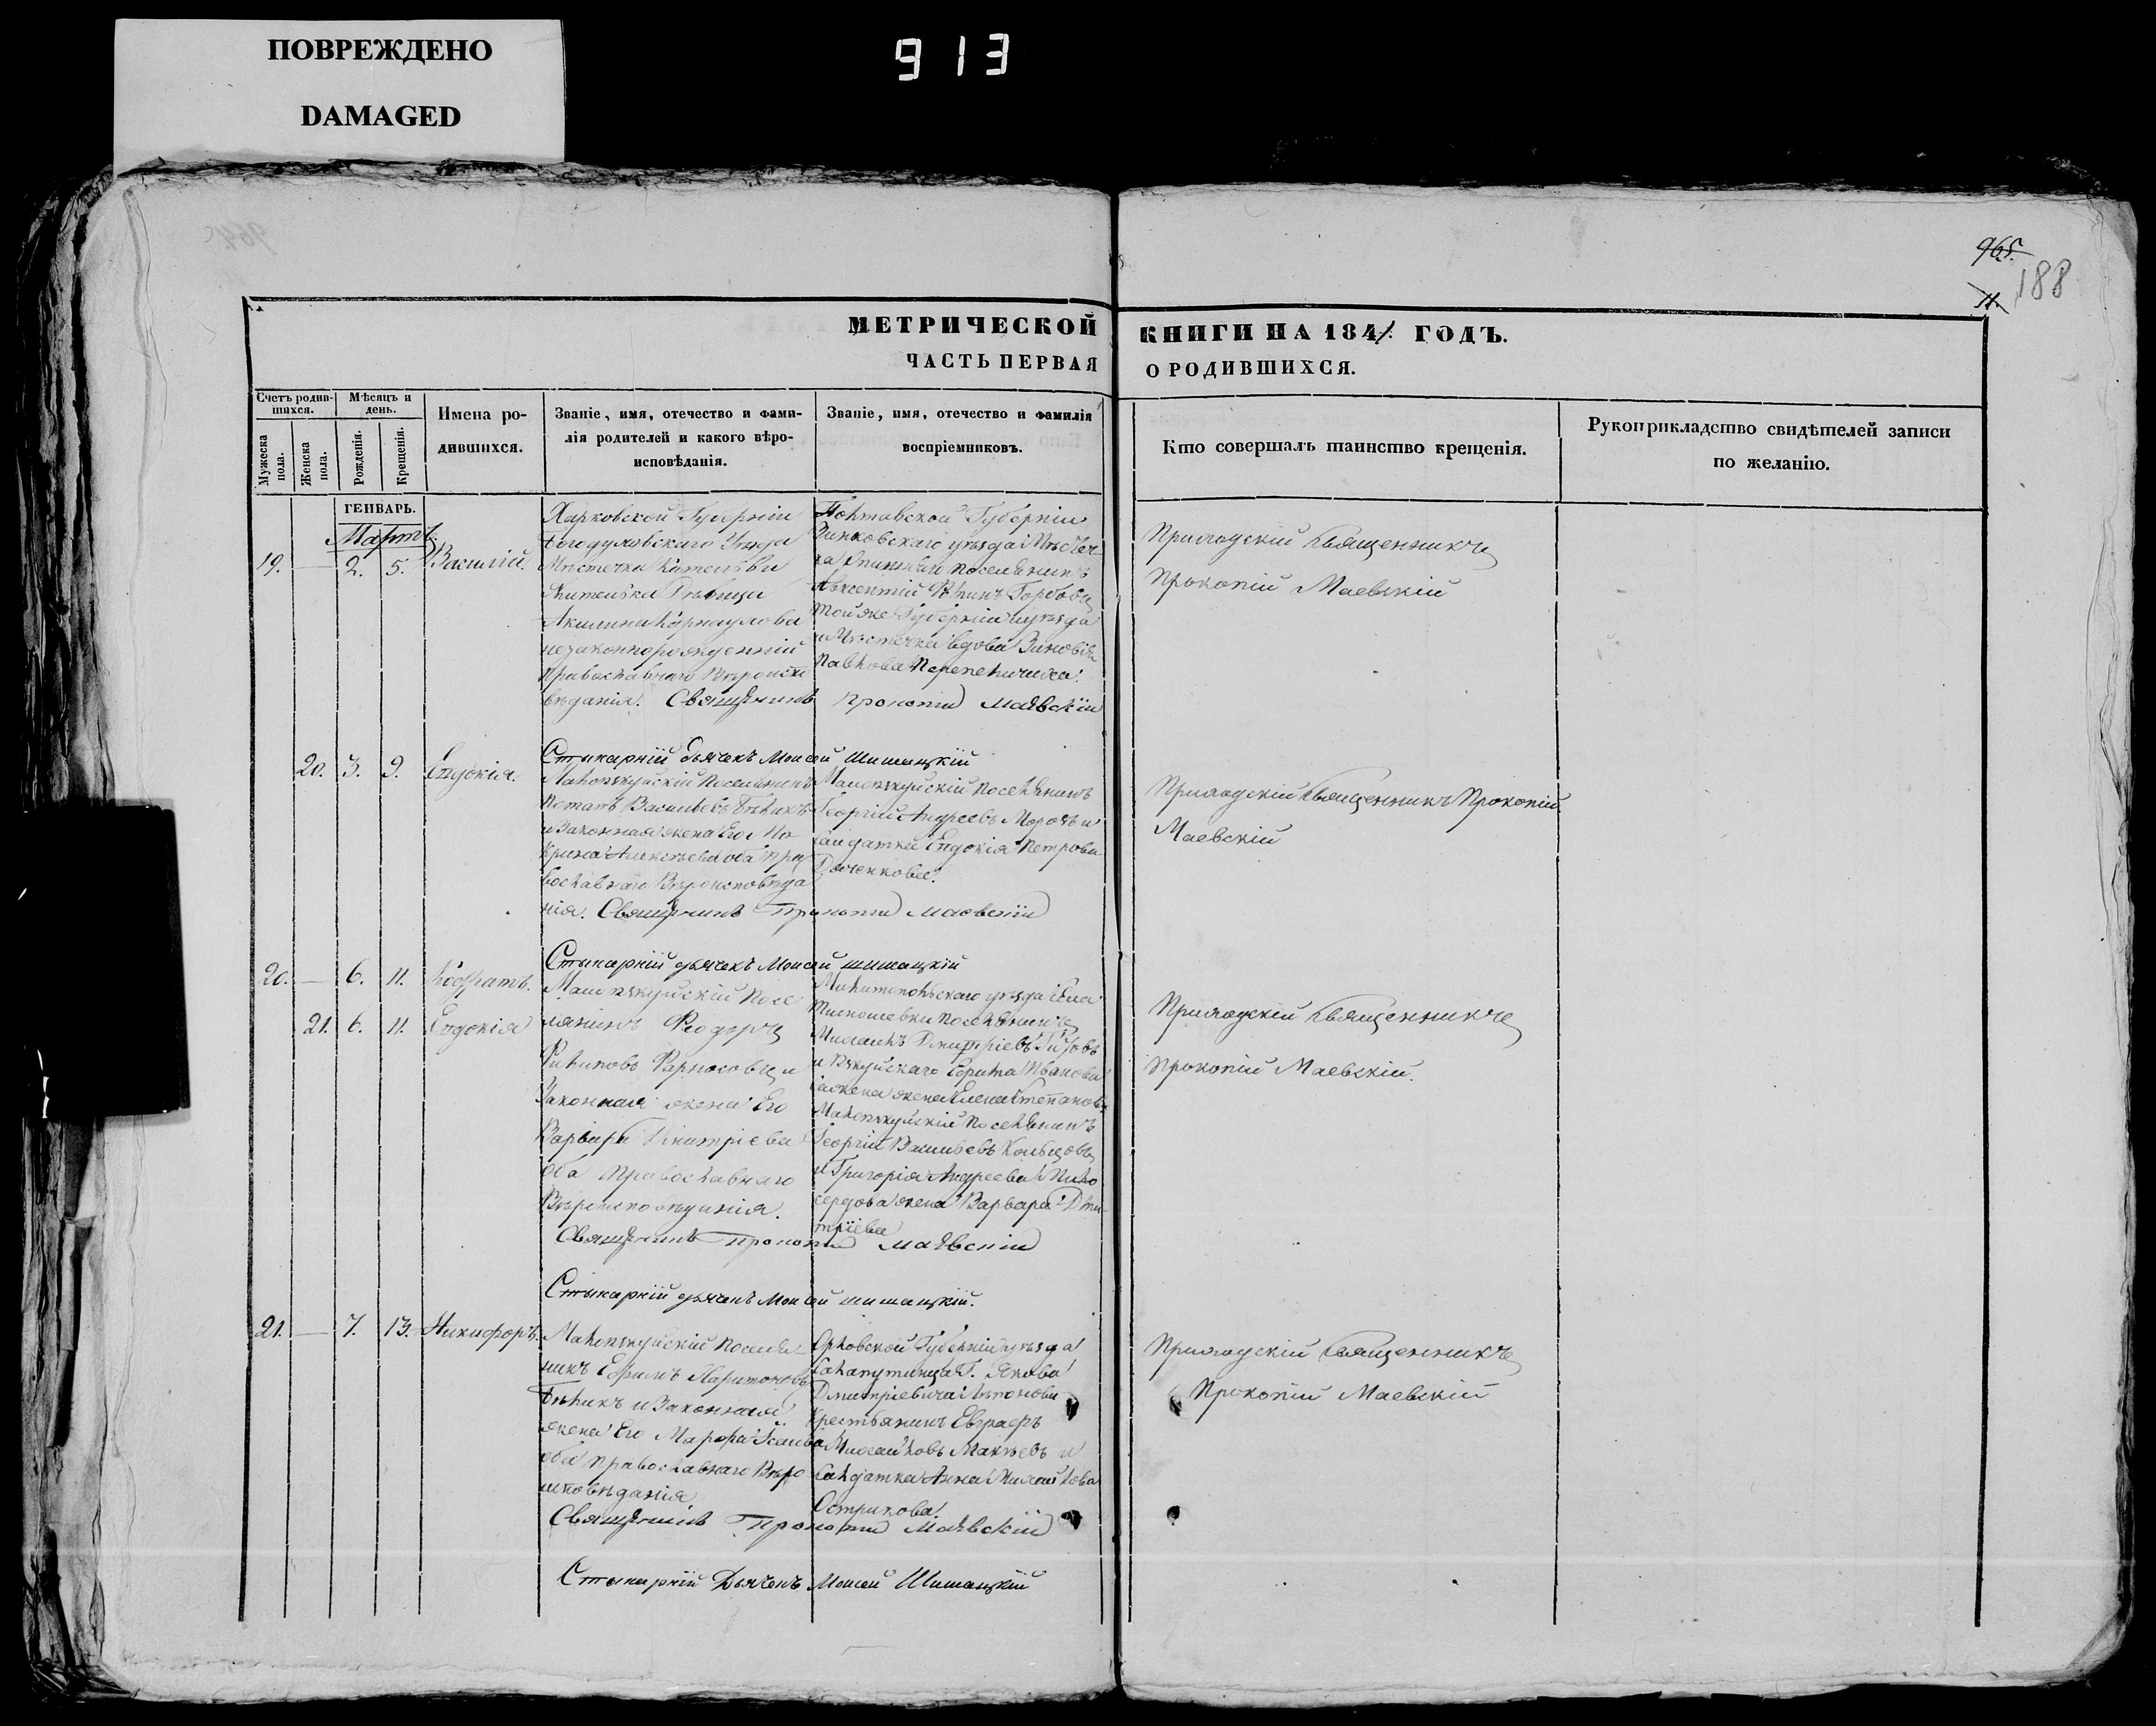 ПОВРЕЖДЕНО
DAMAGED
913
965.
11.
188
МЕТРИЧЕСКОЙ КНИГИ НА 1841 ГОДЪ.
ЧАСТЬ ПЕРВАЯ О РОДИВШИХСЯ.
Счетъ родившихся.
Мужеска пола.
Женска пола.
Мѣсяцъ и день.
Рожденія.
Крещенія.
Имена родившихся.
Званіе, имя, отечество и фамилія родителей и какого вѣроисповѣданія.
Званіе, имя, отечество и фамилія воспріемниковъ.
Кто совершалъ таинство крещенія.
Рукоприкладство свидѣтелей записи по желанію.
ГЕНВАРЬ.
Мартъ.
19. — 2. 5. Василій.
Харковской Губерніи
Богодуховскаго Уѣзда
Мѣстечка Котельвы
Жителька Дѣвица
Акилина Карнаухова
незаконнорожденній
Православнаго Вѣроиспо
вѣданія. Священникъ Прокопій Маевскій
Полтавской Губерніи
Зинковскаго уѣзда Мѣстеч-
ка Опишнаго поселянинъ
той же Губерніи и уѣзда
и Мѣстечка вдова Зиновія
Павлова
Приходскій Священникъ
Прокопій Маевскій
Стихарній дьячекъ Моисей Шишацкій
20. 3. 9. Евдокія.
поселянинъ
Потапъ Васильевъ Бѣликъ
и Законная жена Его Мо
крина Алексѣева оба пра
вославнаго Вѣроисповѣда
нія. Священникъ Прокопій Маевскій
поселянинъ
Георгій Андреевъ Морозъ и
Салдатка Евдокія Петрова
Дяченкова.
Приходскій Священникъ Прокопій
Маевскій
Стихарній дьячекъ Моисей Шишацкій
20. — 6. 11. Кодратъ.
21. 6. 11. Евдокія
посе
лянинъ Феодоръ
Филиповъ и
Законная жена Его
Варвара Дмитріева
Оба Православнаго
Вѣроисповѣданія.
Священникъ Прокопій Маевскій
Мелитопольскаго уѣзда Села
Тимошевки поселянинъ
Михаилъ Дмитріевъ
жена Елена Степанов.
поселянинъ
Георгій Васильевъ Кольцовъ
и Григорія Андреева Мило
сердова жена Варвара Дми
тріева
Приходскій Священникъ
Прокопій Маевскій.
Стихарній дьячекъ Моисей Шишацкій.
21. — 7. 13. Никифоръ.
поселя
нинъ Ефимъ Харитоновъ
Бѣликъ и Законная
жена Его Марфа Исаева
оба православнаго Вѣро
исповѣданія
Священникъ Прокопій Маевскій
Орловской Губерніи уѣзда
Г. Якова
Дмитріевича
Крестьянинъ Евграфъ
Михайловъ и
Салдатка Анна Михайлова
Острикова.
Приходскій Священникъ
Прокопій Маевскій
Стихарній Дьячекъ Моисей Шишацкій